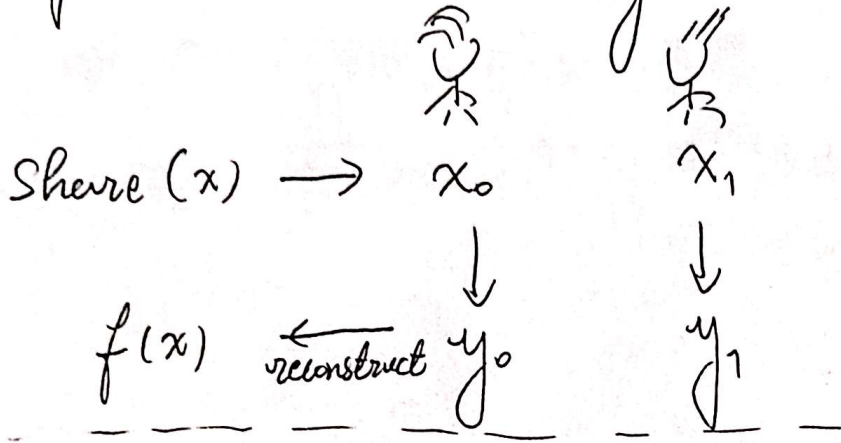 Share (x) → x₀ x₁
↓ ↓
f(x) ← reconstruct y₀ y₁